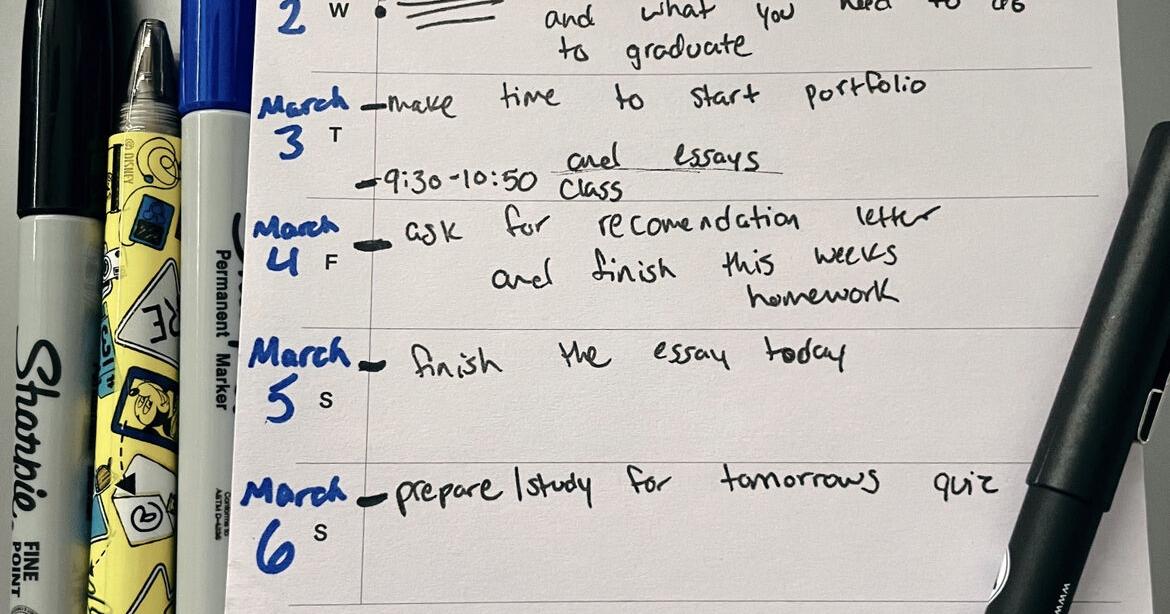 2 W
and what you need to
to graduate
March
3 T
-make time to start portfolio
and essays
-9:30-10:50 class
March
4 F
- ask for recomendation letter
and finish this weeks
homework
March
5 S
- finish the essay today
March
6 S
- prepare/study for tomorrows quiz
Sharpie
FINE
POINT
Permanent Marker
Conforms to
ASTM D-4236
©DISNEY
www